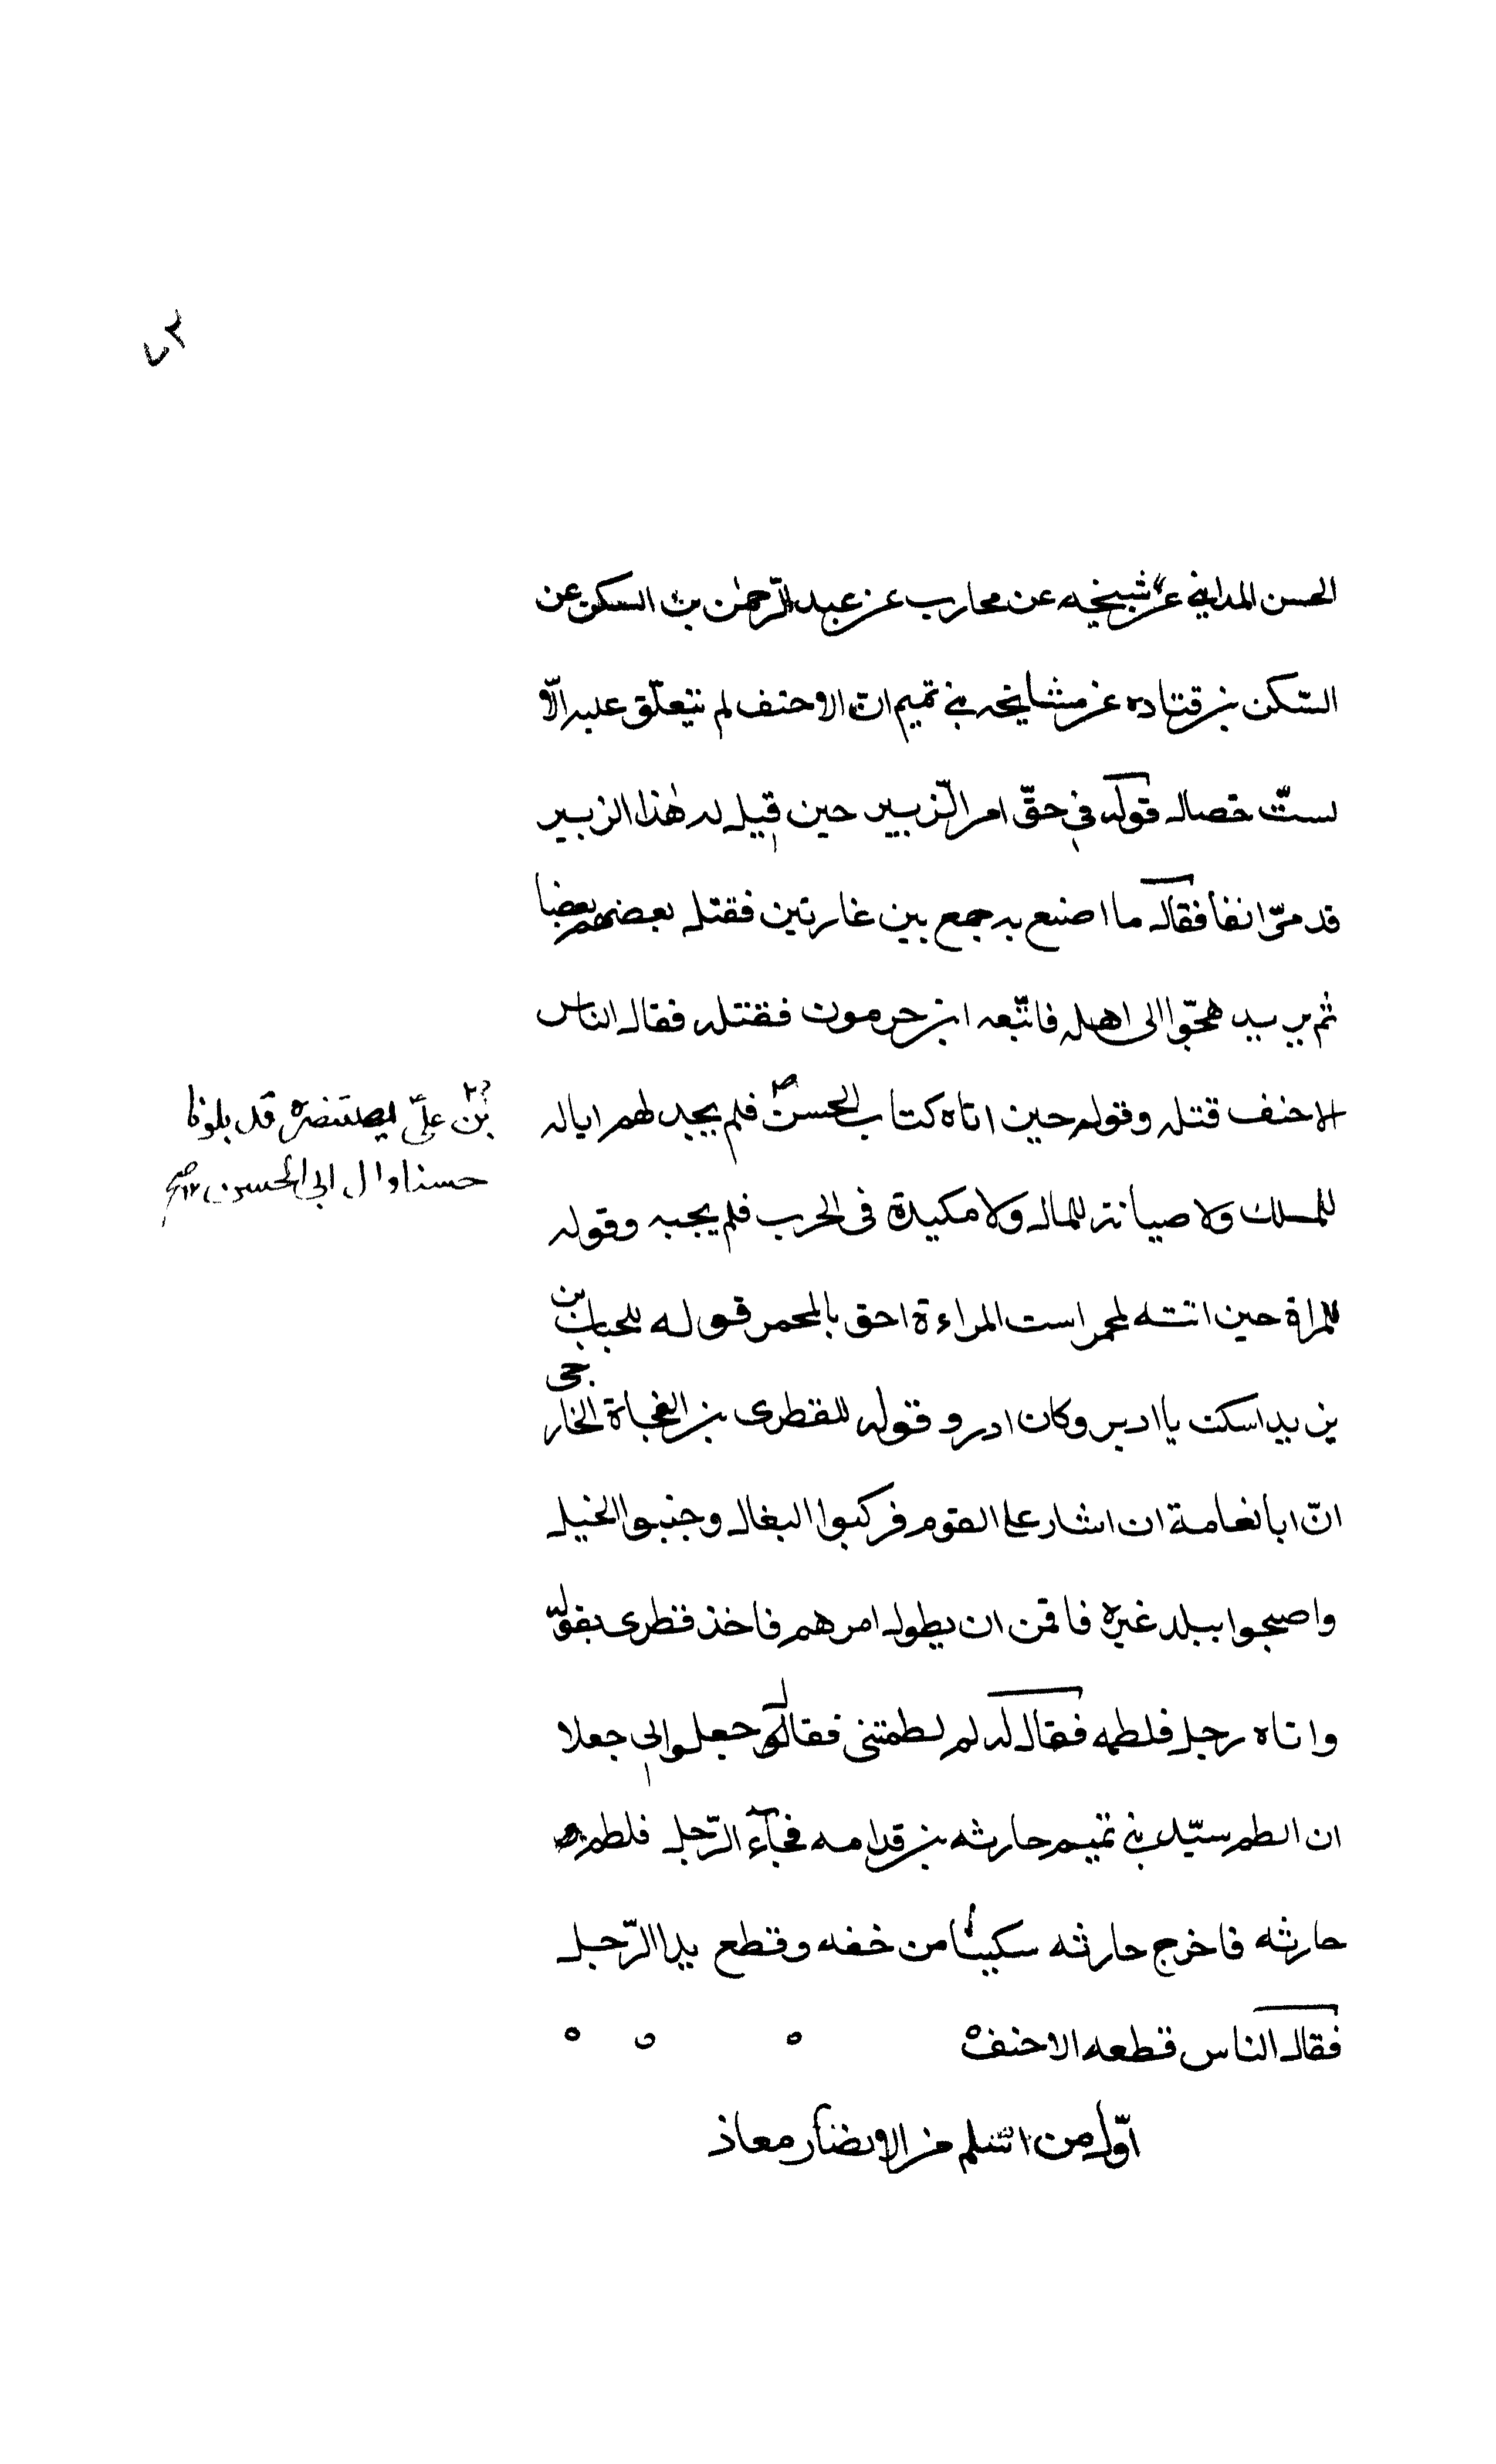 ٧٣
الحسن المدايني عن شيخه عن محارب عن عبد الرّحمٰن بن السكن عن
السّكن بن قتاده عن مشايخه بني تميم انّ الاحنف لم تتعلّق عليه الّا
لستّ خصال قوله في حقّ امر الزّبير حين قيل له هٰذا الزبير
قد مرّ انفا فقال ما اصنع به جمع بين غارتين فقتل بعضهم بعضا
ثم يريد الى اهله فاتّبعه ابن جرموت فقتله فقال الناس
الاحنف قتله وقوله حين اتاه كتاب الحسن فلم يجد لهم ايال
بن عليّ يستنصره قد بلونا
حسنا وال ابي الحسن ١٢ صح
للملك ولا صيانة للمال ولا مكيدة فى الحرب فلم يجبه وقوله
للمراة حين اتته لمجمر است المراءة احق بالمجمر قوله للحباب بن
يزيد اسكت يا ادير وكان ادر وقوله للقطرى بن الفجاة الخارجى
انّ ابا نعامة ان اشار على القوم فركبوا البغال وجنبوا الخيل
واصبحوا ببلد غيره فاقمن ان يطول امرهم فاخذ قطرى بقوله
واتاه رجل فلطمه فقال له لم لطمتنى فقال جعلوا لي جعلا
ان الطم سيّد بني تميم حارثه بن قدامه فجآء الرّجل فلطم
حارثه فاخرج حارثه سكينا من خفه وقطع يدا الرّجل
فقال الناس قطعه الاحنف
اوّل من اسلم من الانصار معاذ